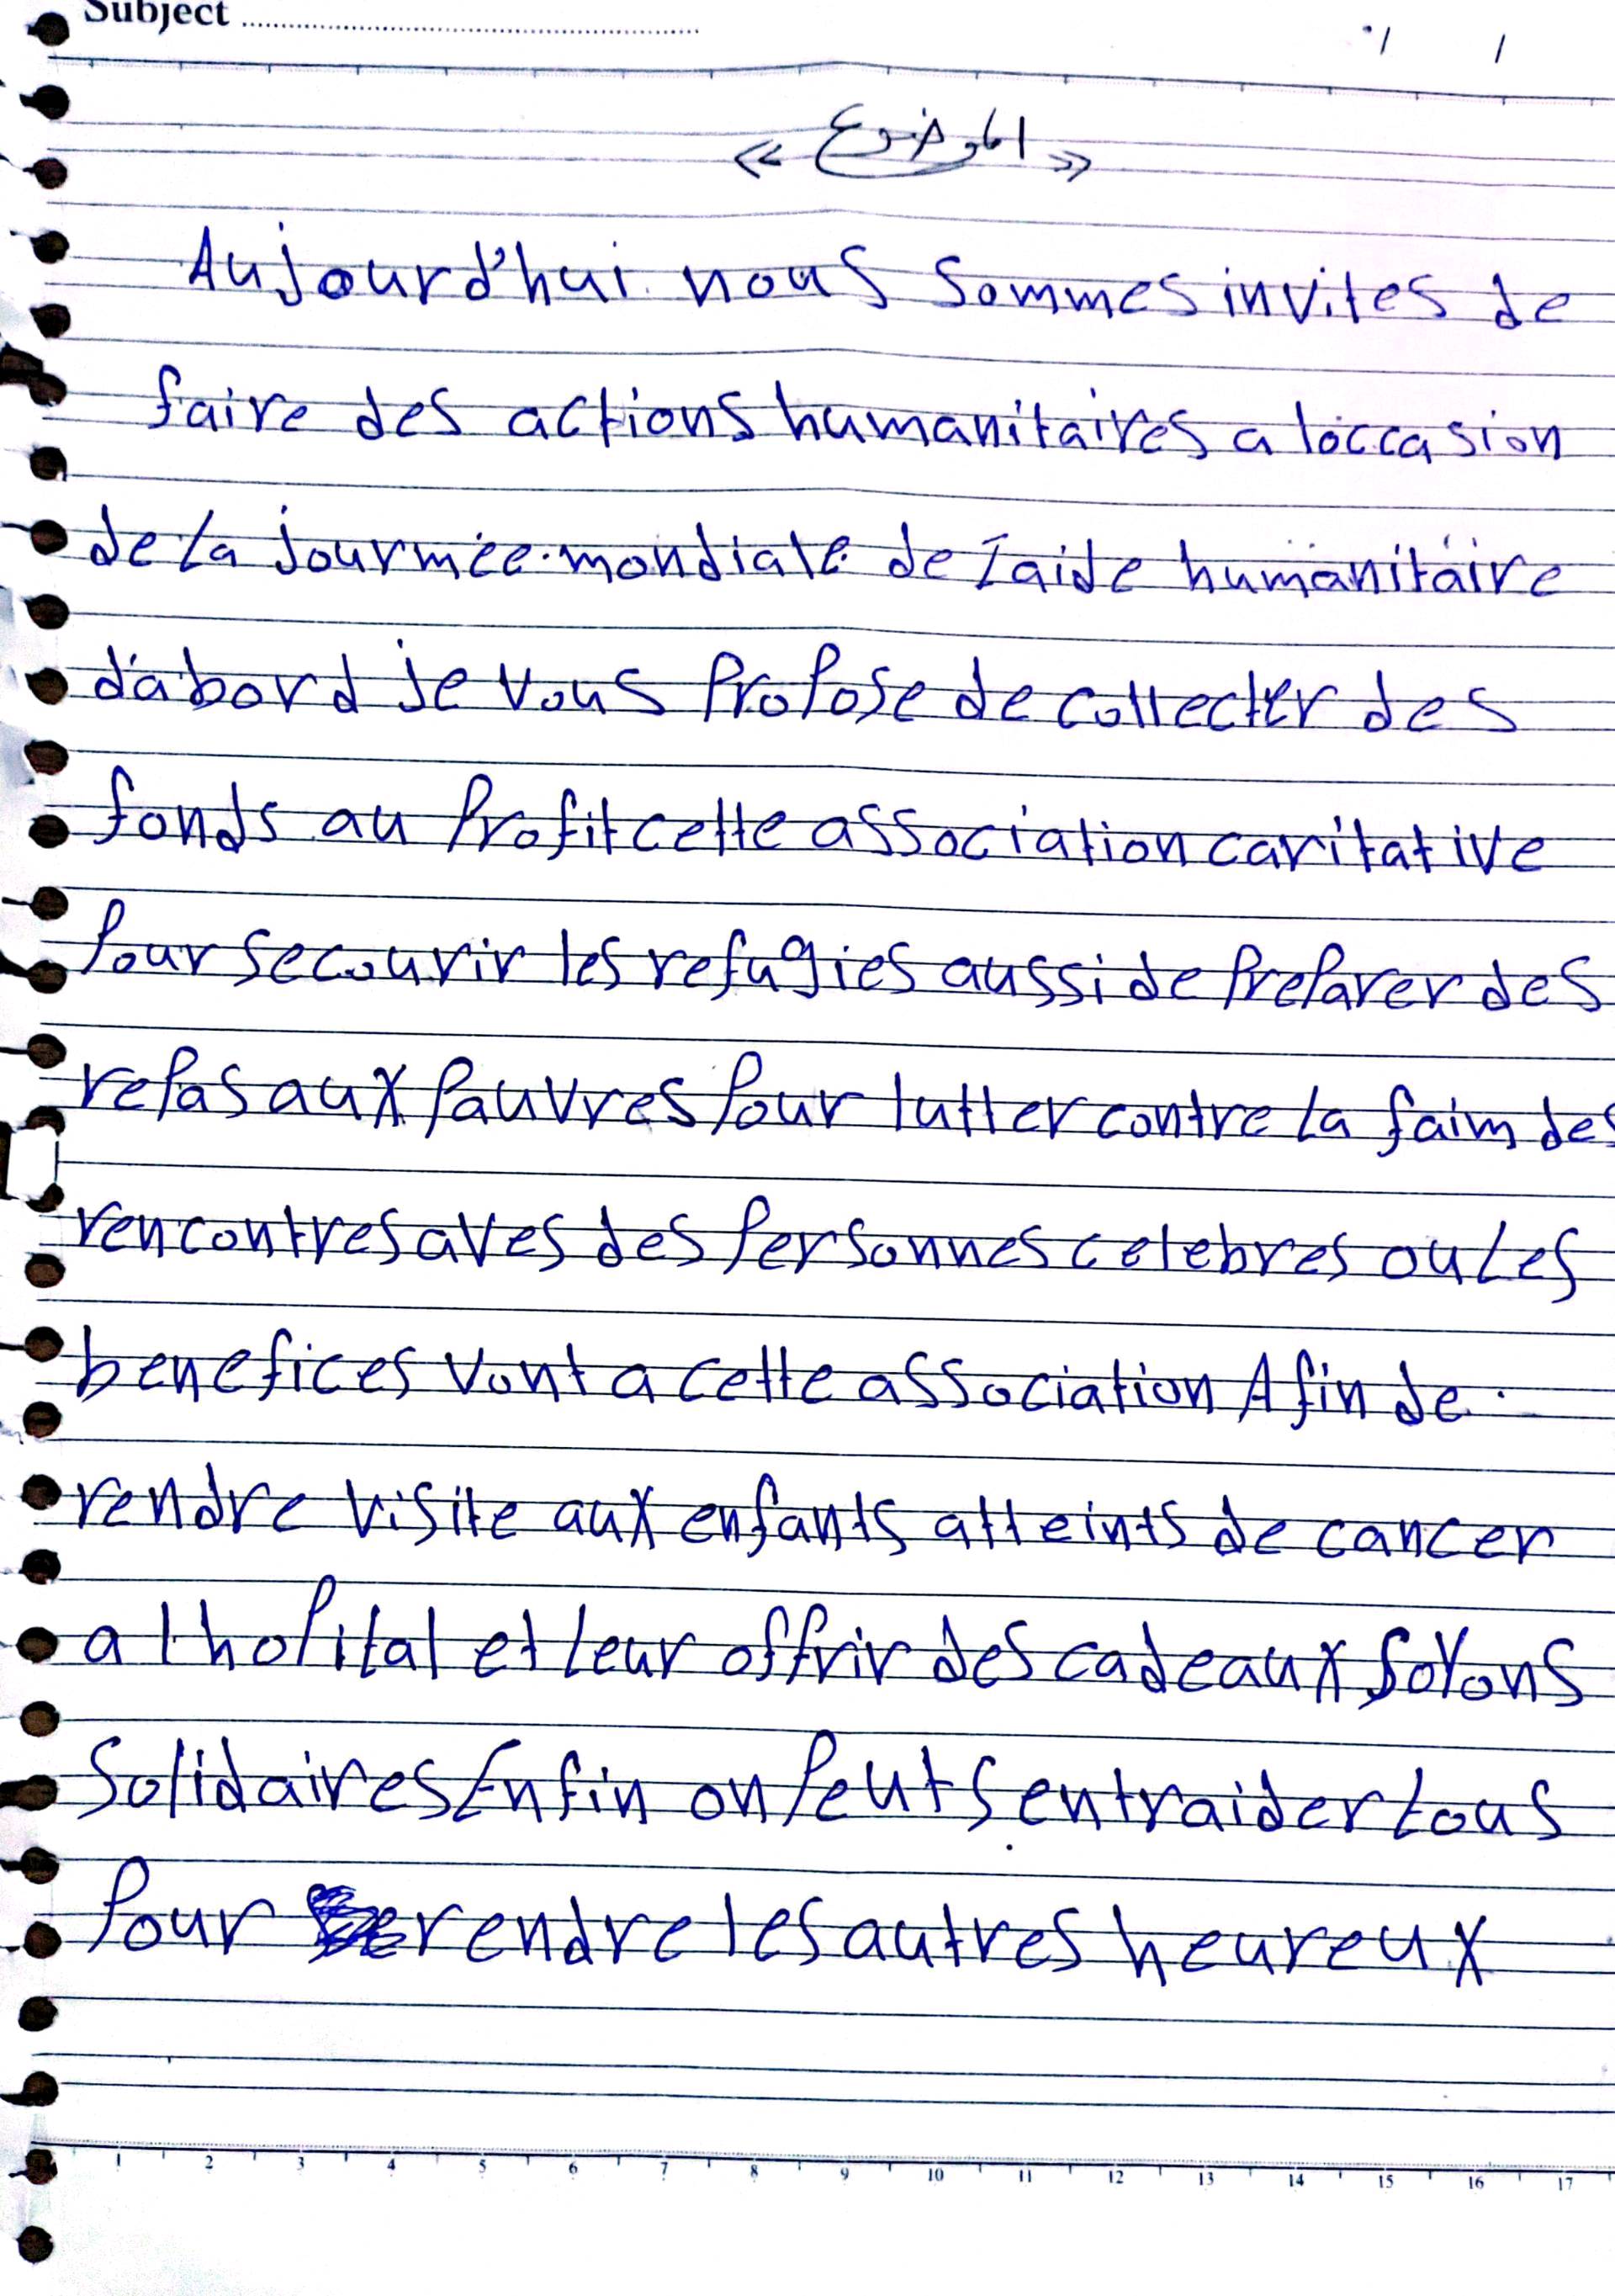 Subject
/ /
« الموضوع »
Aujourd'hui nous sommes invites de
faire des actions humanitaires a l'occasion
de la journmée mondiale de l'aide humanitaire
d'abord je vous propose de collecter des
fonds au profit cette association caritative
pour secourir les refugies aussi de preparer des
repas aux pauvres pour lutter contre la faim des
rencontres aves des personnes celebres ou les
benefices vont a cette association Afin de
rendre visite aux enfants atteints de cancer
a l hopital et leur offrir des cadeaux soyons
solidaires Enfin on peut s entraider tous
pour rendre les autres heureux
1 2 3 4 5 6 7 8 9 10 11 12 13 14 15 16 17